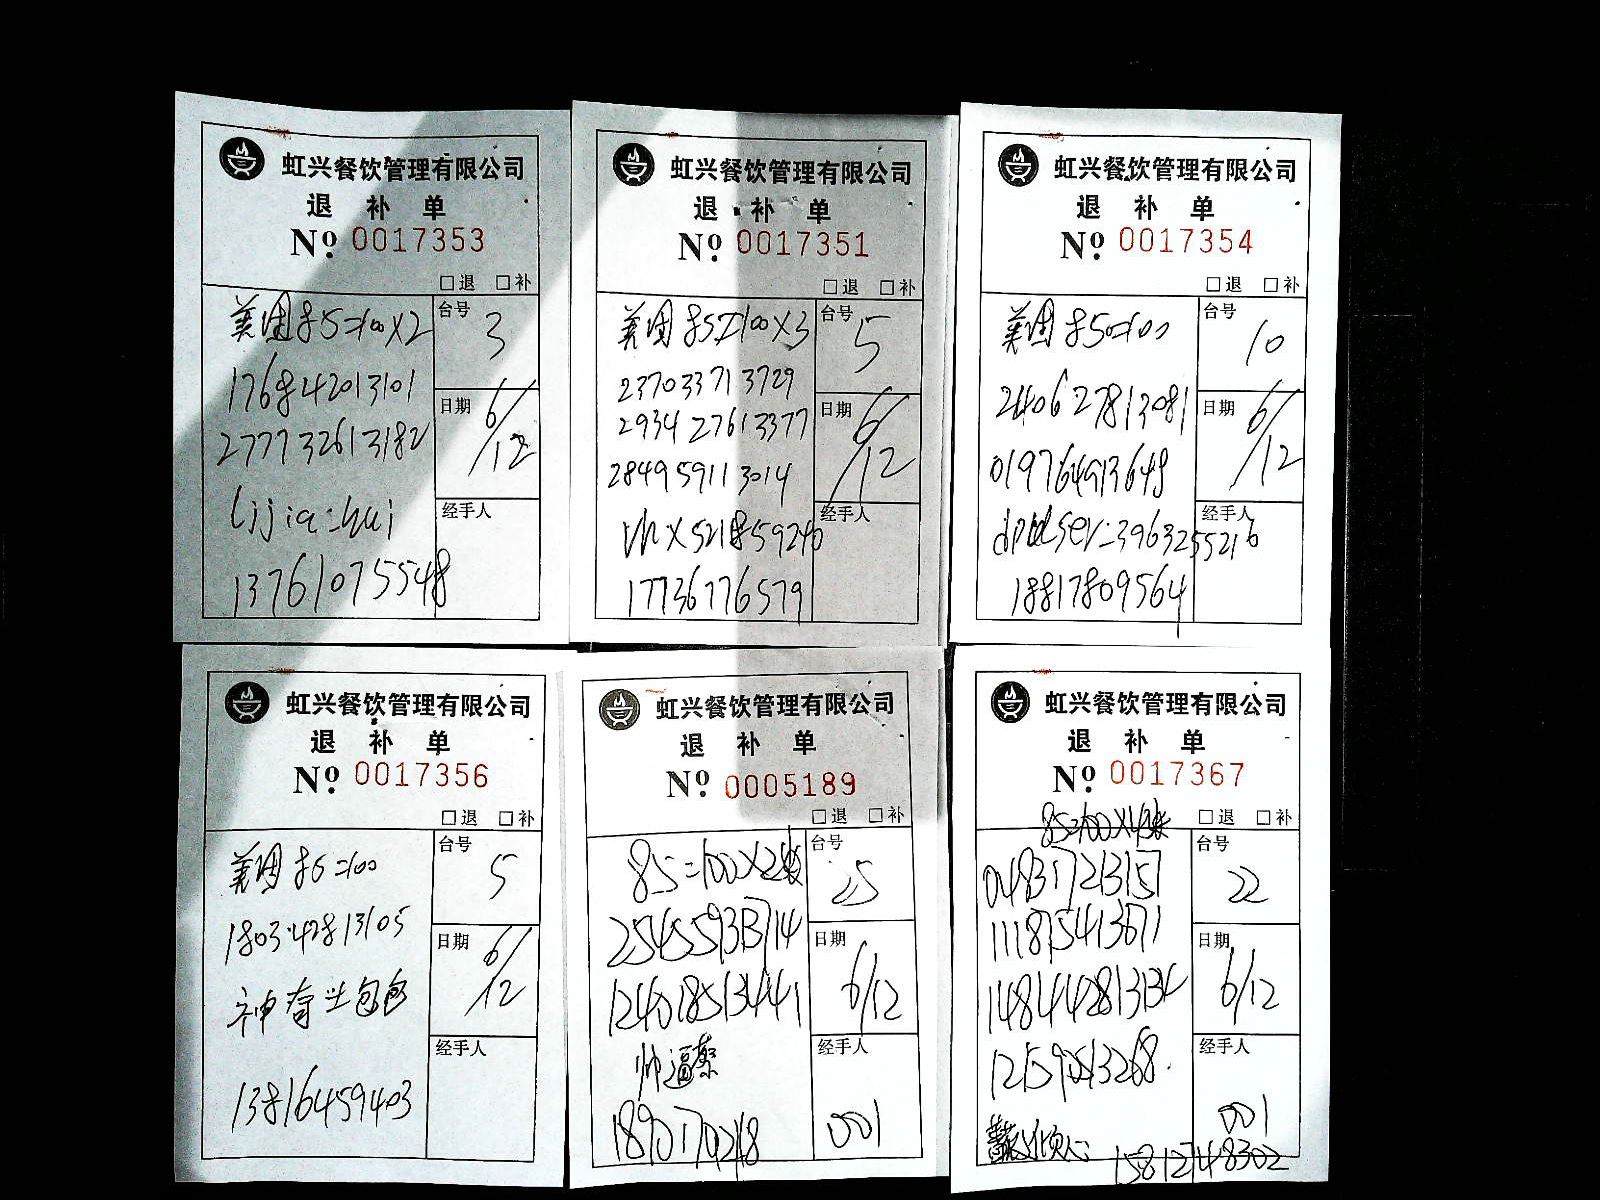 虹兴餐饮管理有限公司
退 补 单
No. 0017353
□退 □补
美团85=100X2
台号
3
176842013101
277732613182
日期
6/12
ljjia-hui
经手人
13761075548
虹兴餐饮管理有限公司
退 补 单
No. 0017351
□退 □补
美团85=100X3
台号
5
237033713729
293427613377
日期
6/12
284959113014
经手人
17736776579
虹兴餐饮管理有限公司
退 补 单
No. 0017354
□退 □补
美团85=100
台号
10
240627813081
日期
6/12
019764913649
经手人
18817809564
虹兴餐饮管理有限公司
退 补 单
No. 0017356
□退 □补
美团85=100
台号
5
180342813105
日期
6/12
经手人
13816459403
虹兴餐饮管理有限公司
退 补 单
No. 0005189
□退 □补
85=100X2张
台号
25
254559313714
日期
6/12
124018513441
经手人
001
虹兴餐饮管理有限公司
退 补 单
No. 0017367
□退 □补
85=100X4张
台号
22
048317213151
111815413671
日期
6/12
148144281313
经手人
001
15812148302